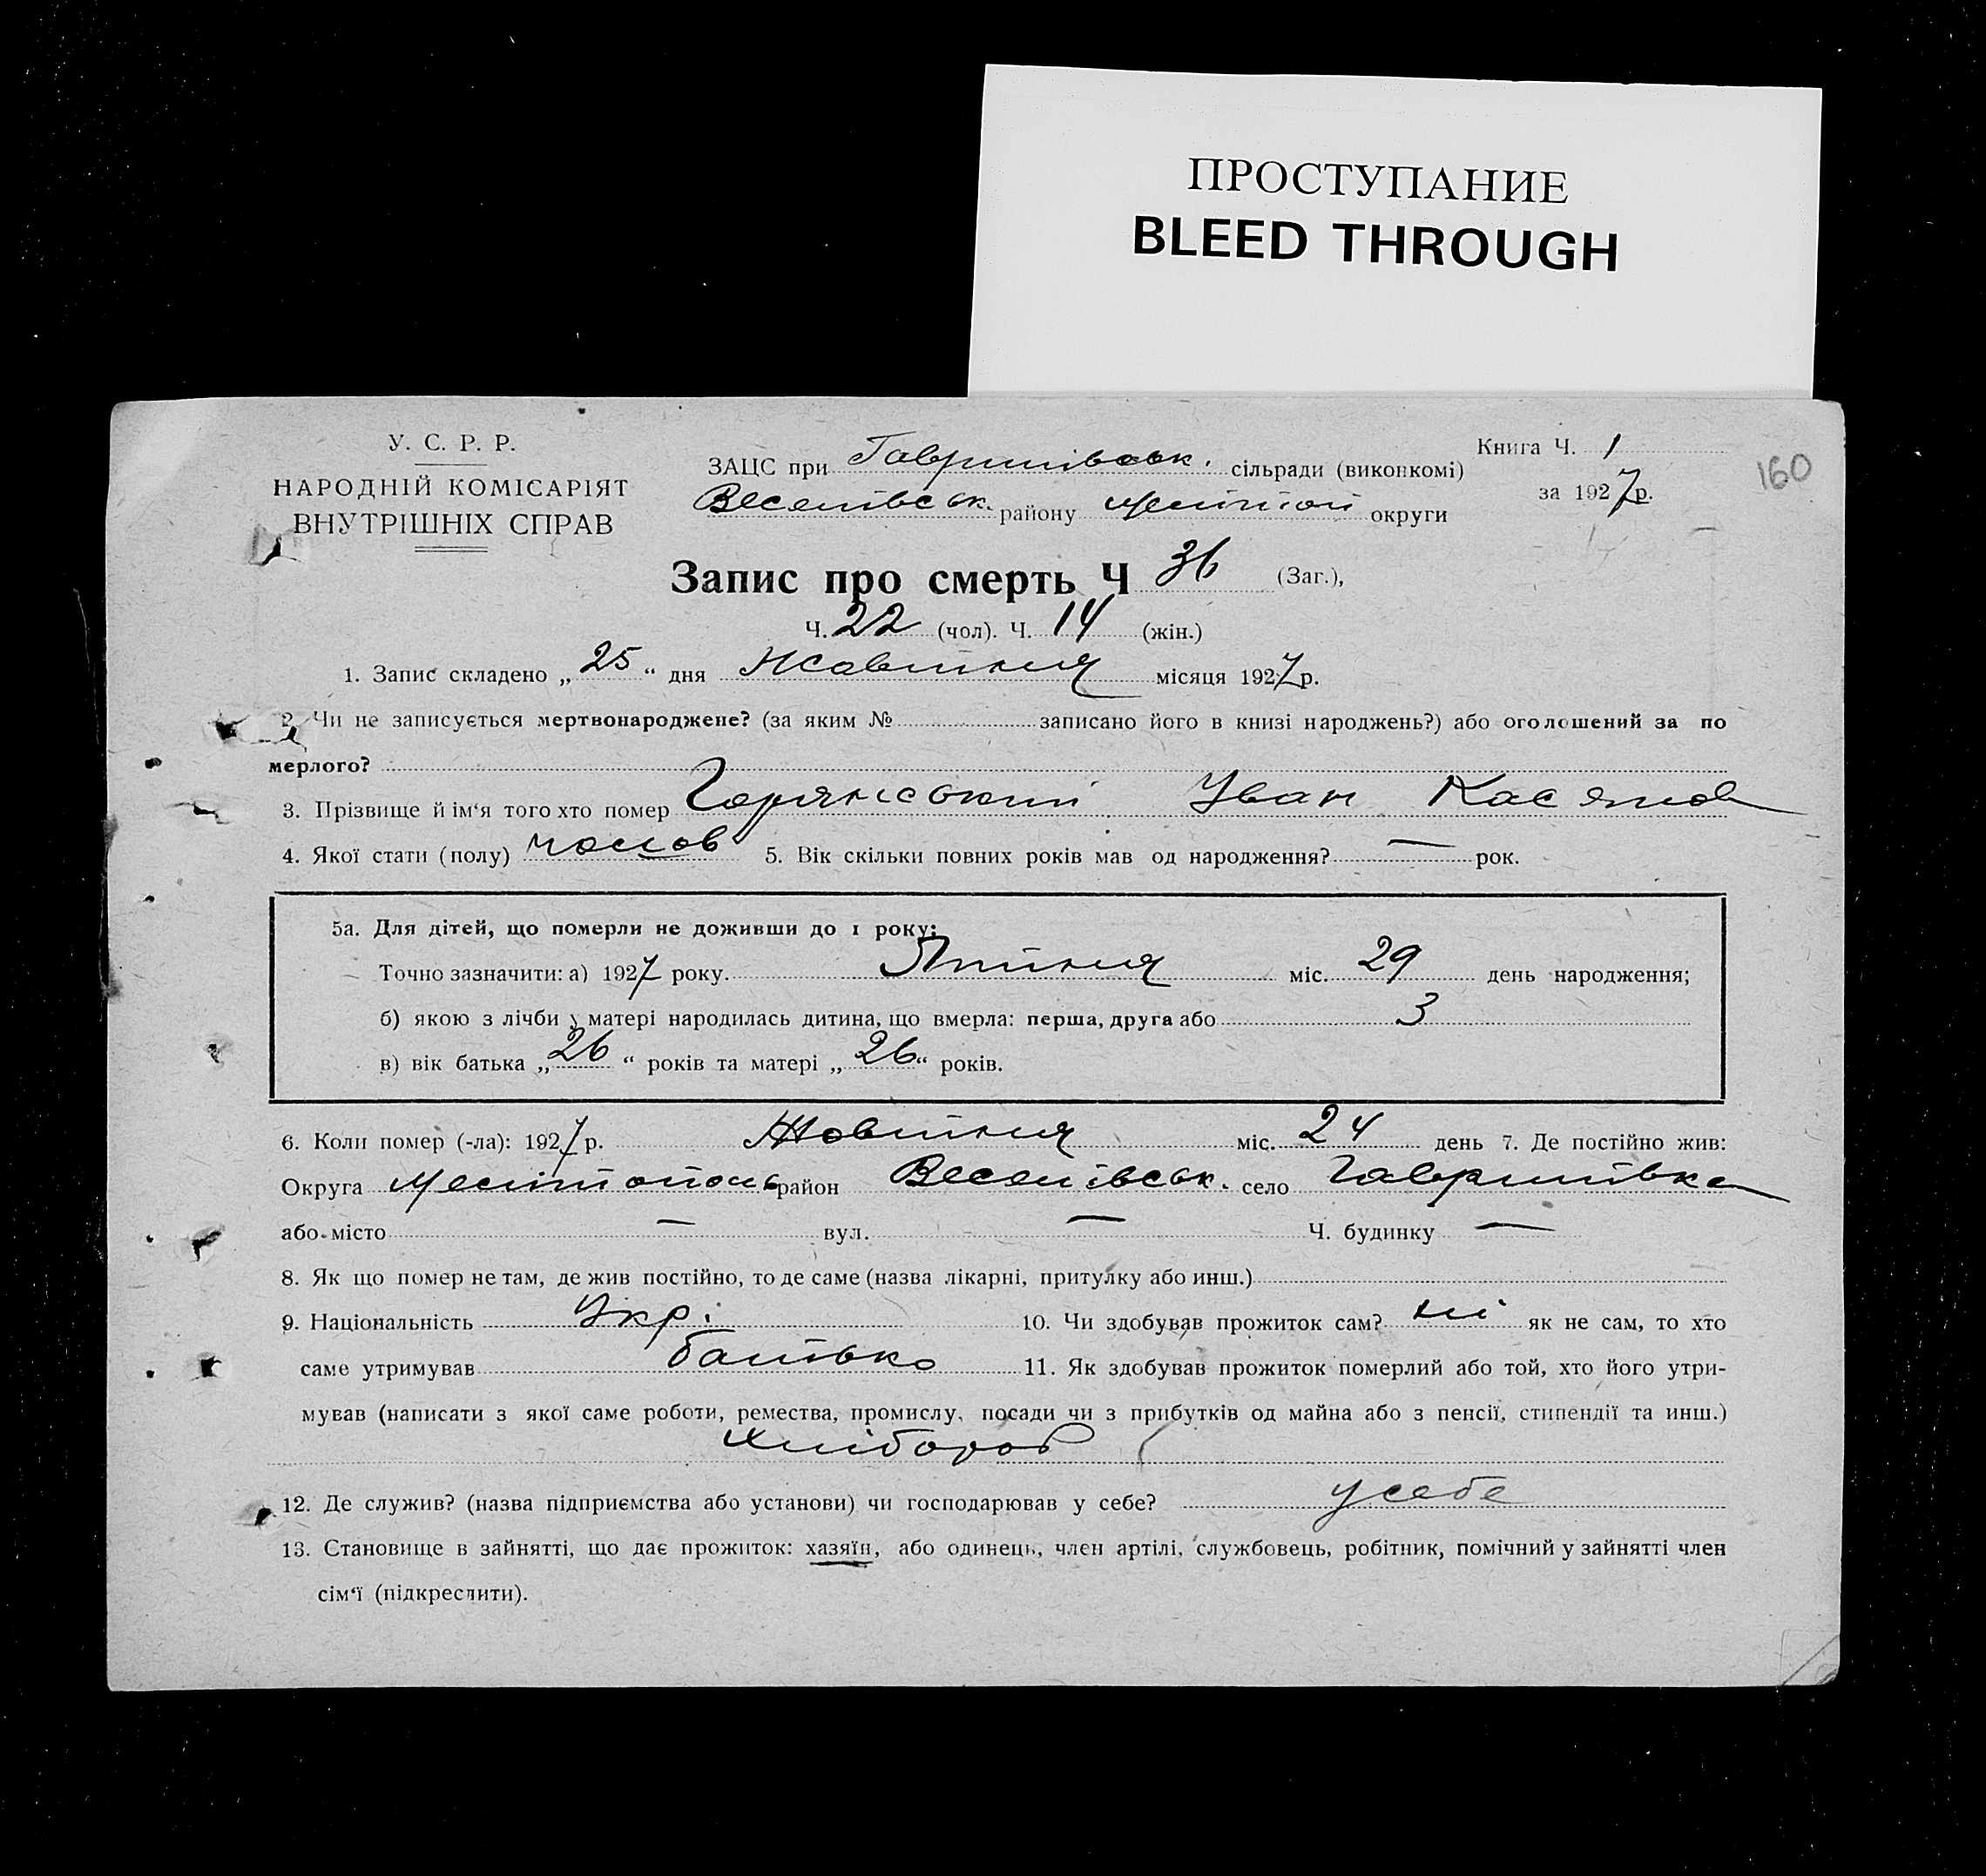 ПРОСТУПАНИЕ
BLEED THROUGH
160
У. С. Р. Р.
НАРОДНІЙ КОМІСАРІЯТ
ВНУТРІШНІХ СПРАВ
ЗАЦС при Гаврилівськ. сільради (виконкомі)
Веселівськ. району Мелітоп округи
Книга Ч. 1
за 1927 р.
Запис про смерть Ч 36 (Заг.),
Ч. 22 (чол). Ч. 14 (жін.)
1. Запис складено „25“ дня Жовтня місяця 1927 р.
2. Чи не записується мертвонароджене? (за яким № записано його в книзі народжень?) або оголошений за по
мерлого?
3. Прізвище й ім'я того хто помер Горянський Іван Касянов
4. Якої стати (полу) чолов 5. Вік скільки повних років мав од народження? — рок.
5а. Для дітей, що померли не доживши до 1 року:
Точно зазначити: а) 1927 року. міс. 29 день народження;
б) якою з лічби у матері народилась дитина, що вмерла: перша, друга або 3
в) вік батька „26“ років та матері „26“ років.
6. Коли помер (-ла): 1927 р. Жовтня міс. 24 день 7. Де постійно жив:
Округа Мелітополь район Веселівськ. село Гаврилівка
або місто — вул. — Ч. будинку —
8. Як що помер не там, де жив постійно, то де саме (назва лікарні, притулку або инш.)
9. Національність Укр. 10. Чи здобував прожиток сам? ні як не сам, то хто
саме утримував батько 11. Як здобував прожиток померлий або той, хто його утри-
мував (написати з якої саме роботи, ремества, промислу, посади чи з прибутків од майна або з пенсії, стипендії та инш.)
Хлібороб
12. Де служив? (назва підприємства або установи) чи господарював у себе? у себе
13. Становище в зайнятті, що дає прожиток: хазяїн, або одинець, член артілі, службовець, робітник, помічний у зайнятті член
сім'ї (підкреслити).